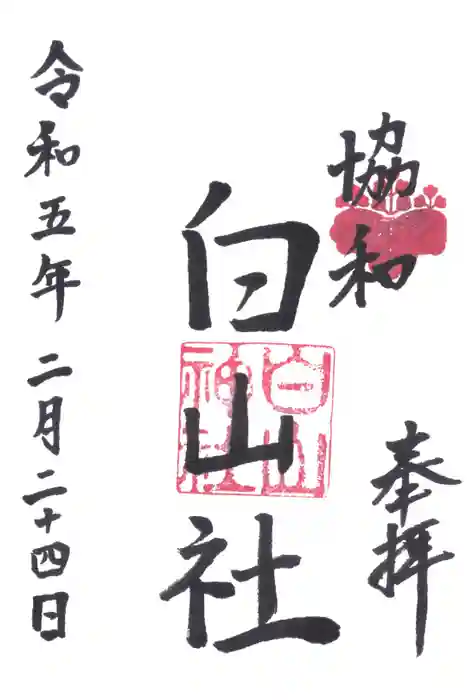 協和
奉拝
白山社
白山神社
令和五年二月二十四日